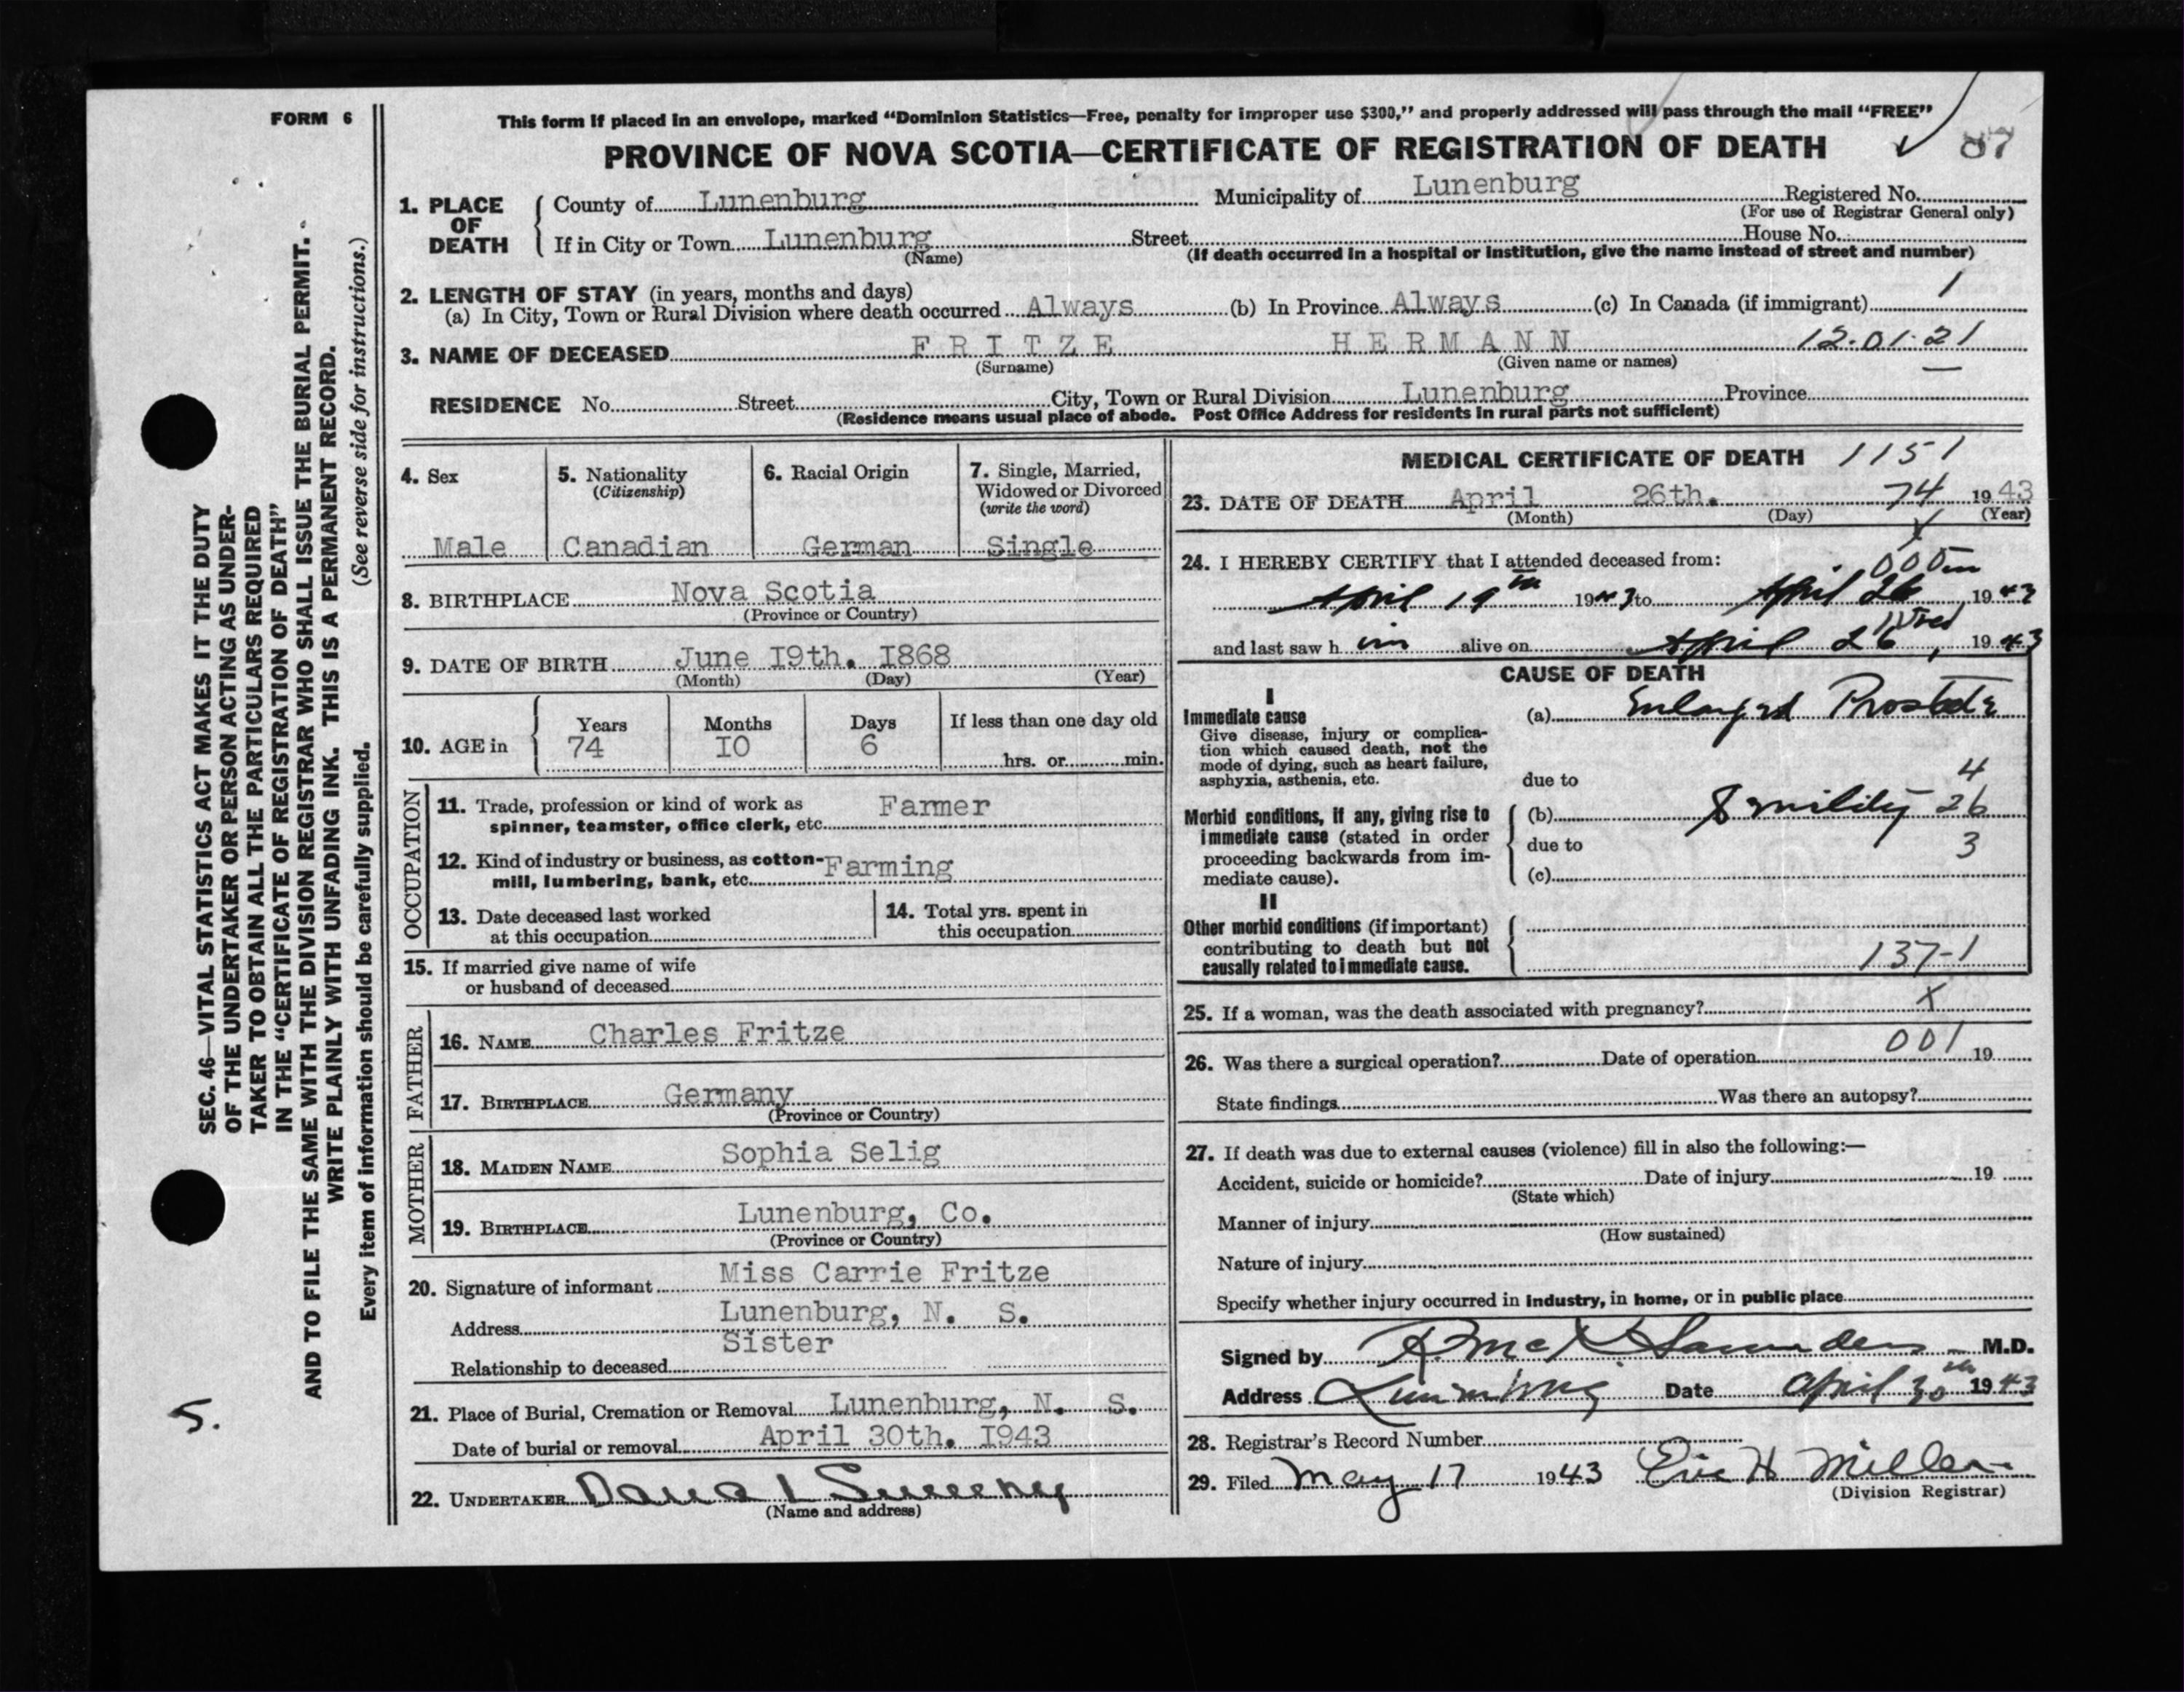 FORM 6
This form if placed in an envelope, marked “Dominion Statistics—Free, penalty for improper use $300,” and properly addressed will pass through the mail “FREE”
PROVINCE OF NOVA SCOTIA—CERTIFICATE OF REGISTRATION OF DEATH
87
1. PLACE OF DEATH
County of Lunenburg Municipality of Lunenburg Registered No.
(For use of Registrar General only)
If in City or Town Lunenburg Street House No.
(Name) (If death occurred in a hospital or institution, give the name instead of street and number)
2. LENGTH OF STAY (in years, months and days)
(a) In City, Town or Rural Division where death occurred Always (b) In Province Always (c) In Canada (if immigrant) 1
3. NAME OF DECEASED FRITZE HERMANN 12.01.21
(Surname) (Given name or names)
RESIDENCE No. Street City, Town or Rural Division Lunenburg Province
(Residence means usual place of abode. Post Office Address for residents in rural parts not sufficient)
4. Sex
Male
5. Nationality
(Citizenship)
Canadian
6. Racial Origin
German
7. Single, Married,
Widowed or Divorced
(write the word)
Single
8. BIRTHPLACE Nova Scotia
(Province or Country)
9. DATE OF BIRTH June I9th. I868
(Month) (Day) (Year)
10. AGE in
Years Months Days If less than one day old
74 IO 6 hrs. or min.
OCCUPATION
11. Trade, profession or kind of work as Farmer
spinner, teamster, office clerk, etc.
12. Kind of industry or business, as cotton- Farming
mill, lumbering, bank, etc.
13. Date deceased last worked
at this occupation
14. Total yrs. spent in
this occupation
15. If married give name of wife
or husband of deceased
FATHER
16. NAME Charles Fritze
17. BIRTHPLACE Germany
(Province or Country)
MOTHER
18. MAIDEN NAME Sophia Selig
19. BIRTHPLACE Lunenburg, Co.
(Province or Country)
20. Signature of informant Miss Carrie Fritze
Address Lunenburg, N. S.
Relationship to deceased Sister
21. Place of Burial, Cremation or Removal Lunenburg, N. S.
Date of burial or removal April 30th. I943
22. UNDERTAKER Sweeny
(Name and address)
MEDICAL CERTIFICATE OF DEATH 1151
23. DATE OF DEATH April 26th. 74 1943
(Month) (Day) (Year)
X
24. I HEREBY CERTIFY that I attended deceased from:
000
April 19th 1943 to April 26 1943
and last saw him alive on April 26, 1943
CAUSE OF DEATH
I
Immediate cause
Give disease, injury or complica-
tion which caused death, not the
mode of dying, such as heart failure,
asphyxia, asthenia, etc.
(a) Enlarged Prostate
due to
4
Morbid conditions, if any, giving rise to
immediate cause (stated in order
proceeding backwards from im-
mediate cause).
(b) Senility 26
due to
3
(c)
II
Other morbid conditions (if important)
contributing to death but not
causally related to immediate cause.
137-1
25. If a woman, was the death associated with pregnancy? X
26. Was there a surgical operation? Date of operation 001 19
State findings Was there an autopsy?
27. If death was due to external causes (violence) fill in also the following:—
Accident, suicide or homicide? Date of injury 19
(State which)
Manner of injury
(How sustained)
Nature of injury
Specify whether injury occurred in industry, in home, or in public place
Signed by Saunders M.D.
Address Lunenburg Date April 30th 1943
28. Registrar's Record Number
29. Filed May 17 1943 Eric H Miller
(Division Registrar)
SEC. 46—VITAL STATISTICS ACT MAKES IT THE DUTY
OF THE UNDERTAKER OR PERSON ACTING AS UNDER-
TAKER TO OBTAIN ALL THE PARTICULARS REQUIRED
IN THE “CERTIFICATE OF REGISTRATION OF DEATH”
AND TO FILE THE SAME WITH THE DIVISION REGISTRAR WHO SHALL ISSUE THE BURIAL PERMIT.
WRITE PLAINLY WITH UNFADING INK. THIS IS A PERMANENT RECORD.
Every item of information should be carefully supplied. (See reverse side for instructions.)
5.